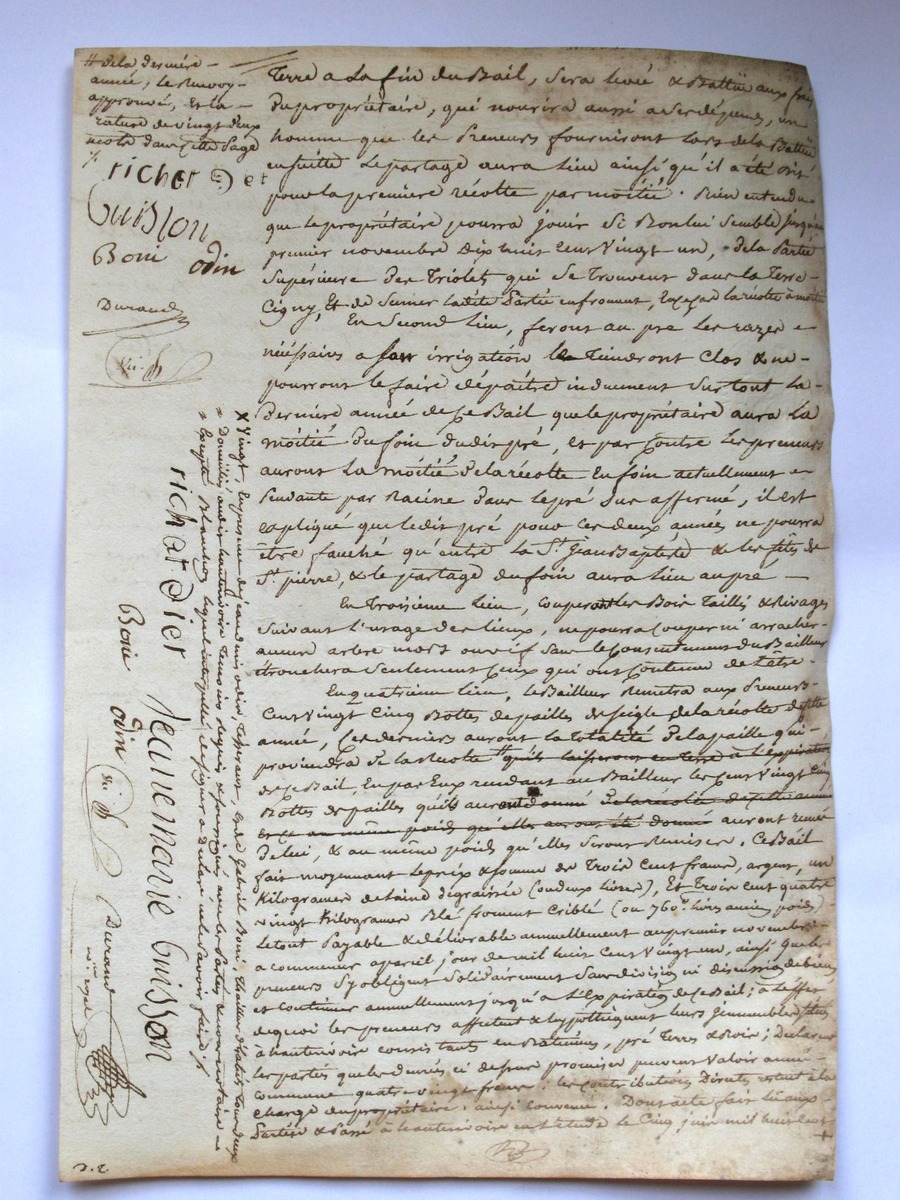 # de la dernière
année, le renvoy
approuvé, et la
rature de vingt deux
mots dans cette page
richer et
Guisson
Boni odin
Durand
Terre a la fin du Bail, sera levé & Battue aux frais
du propriétaire, qui nourira aussi a ses dépens, un
homme que les Preneurs fourniront lors de la Battue
ensuitte le partage aura lieu ainsi qu'il a été dit
pour la première récolte par moitié. Bien entendu
que le propriétaire pourra jouir si Bon lui semble jusqu'au
premier novembre dix huit cent vingt un, de la Partie
Supérieure des Triolet qui se trouvent dans la Terre
Cigny, Et de semer la dite Partie en froment, la récolte a moitié
En Second lieu, feront au pré les razes
nécéssaires a son irrigation le Tiendront Clos & ne
pourront le faire dépaître induement surtout la
Dernière année de ce Bail que le propriétaire aura la
moitié du foin dudit pré, et par contre les preneurs
auront la moitié de la récolte en foin actuellement
pendante par Racine dans le pré sus affermé, il est
expliqué que ledit pré pour ces deux années ne pourra
être fauché qu'entre la St. Jean Baptiste & les fêtes de
St. pierre, & le partage du foin aura lieu au pré
En Troisieme lieu, couperont les Bois Taillis & Rivages
suivant l'usage des lieux, ne pourra couper ni arracher
aucun arbre mort ou vif sans le consentement du Bailleur
Etronchera seulement ceux qui ont coutume de l'être.
En quatrieme lieu, le Bailleur Remetra aux Preneurs
Cent Vingt Cinq Bottes de pailles de seigle de la récolte de cette
année, ces derniers auront la totalité de la paille qui
proviendra de la récolte # qu'ils laisseront en terre à l'expiration
de ce Bail, En par Eux rendant au Bailleur les Cent Vingt Cinq
Bottes de pailles qu'ils auront donné de la récolte de cette année
et ce au même poids qu'elles auront été donné auront reçues
de lui, & au même poids qu'elles seront Remises. Ce Bail
fait moyennant le prix & somme de Trois Cent francs, argent, un
Kilograme de laine dégraissée (ou deux livres), Et Trois Cent quatre
vingt Kilogrames Blé froment Criblé (ou 760 livres ancien poids)
le tout Payable & délivrable annuellement au premier novembre
a commencer a pareil jour de mil huit Cent vingt un, ainsi que les
preneurs s'y obligent solidairement sans division ni discussion de biens
et continuer annuellement jusqu'a l'Expiration de ce Bail; à l'effet
de quoi les preneurs affectent & hypothequent leurs immeubles situés
à hauterivoire consistants en Batimens, pré Terres & Bois; Déclarant
les parties que les denrées ci dessus promises peuvent valoir année
commune quatre vingt francs. les contributions Directes restent à la
charge du propriétaire. ainsi convenu. Dont acte fait lu aux
Parties & Passé à hauterivoire en l'étude le Cinq juin mil huit cent
X Vingt, En présence de Jean denis odin, Tisserant, & de Gabriel Boni, Tailleur d'habits, Tous deux
Domiciliés audit hauterivoire Temoins requis & soussignés avec les Parties & nous notaire
Excepté Blanchon lequel interpellé de signer a déclaré ne le savoir faire
richardier Jeanemarie Guisson
Boni
odin
Durand